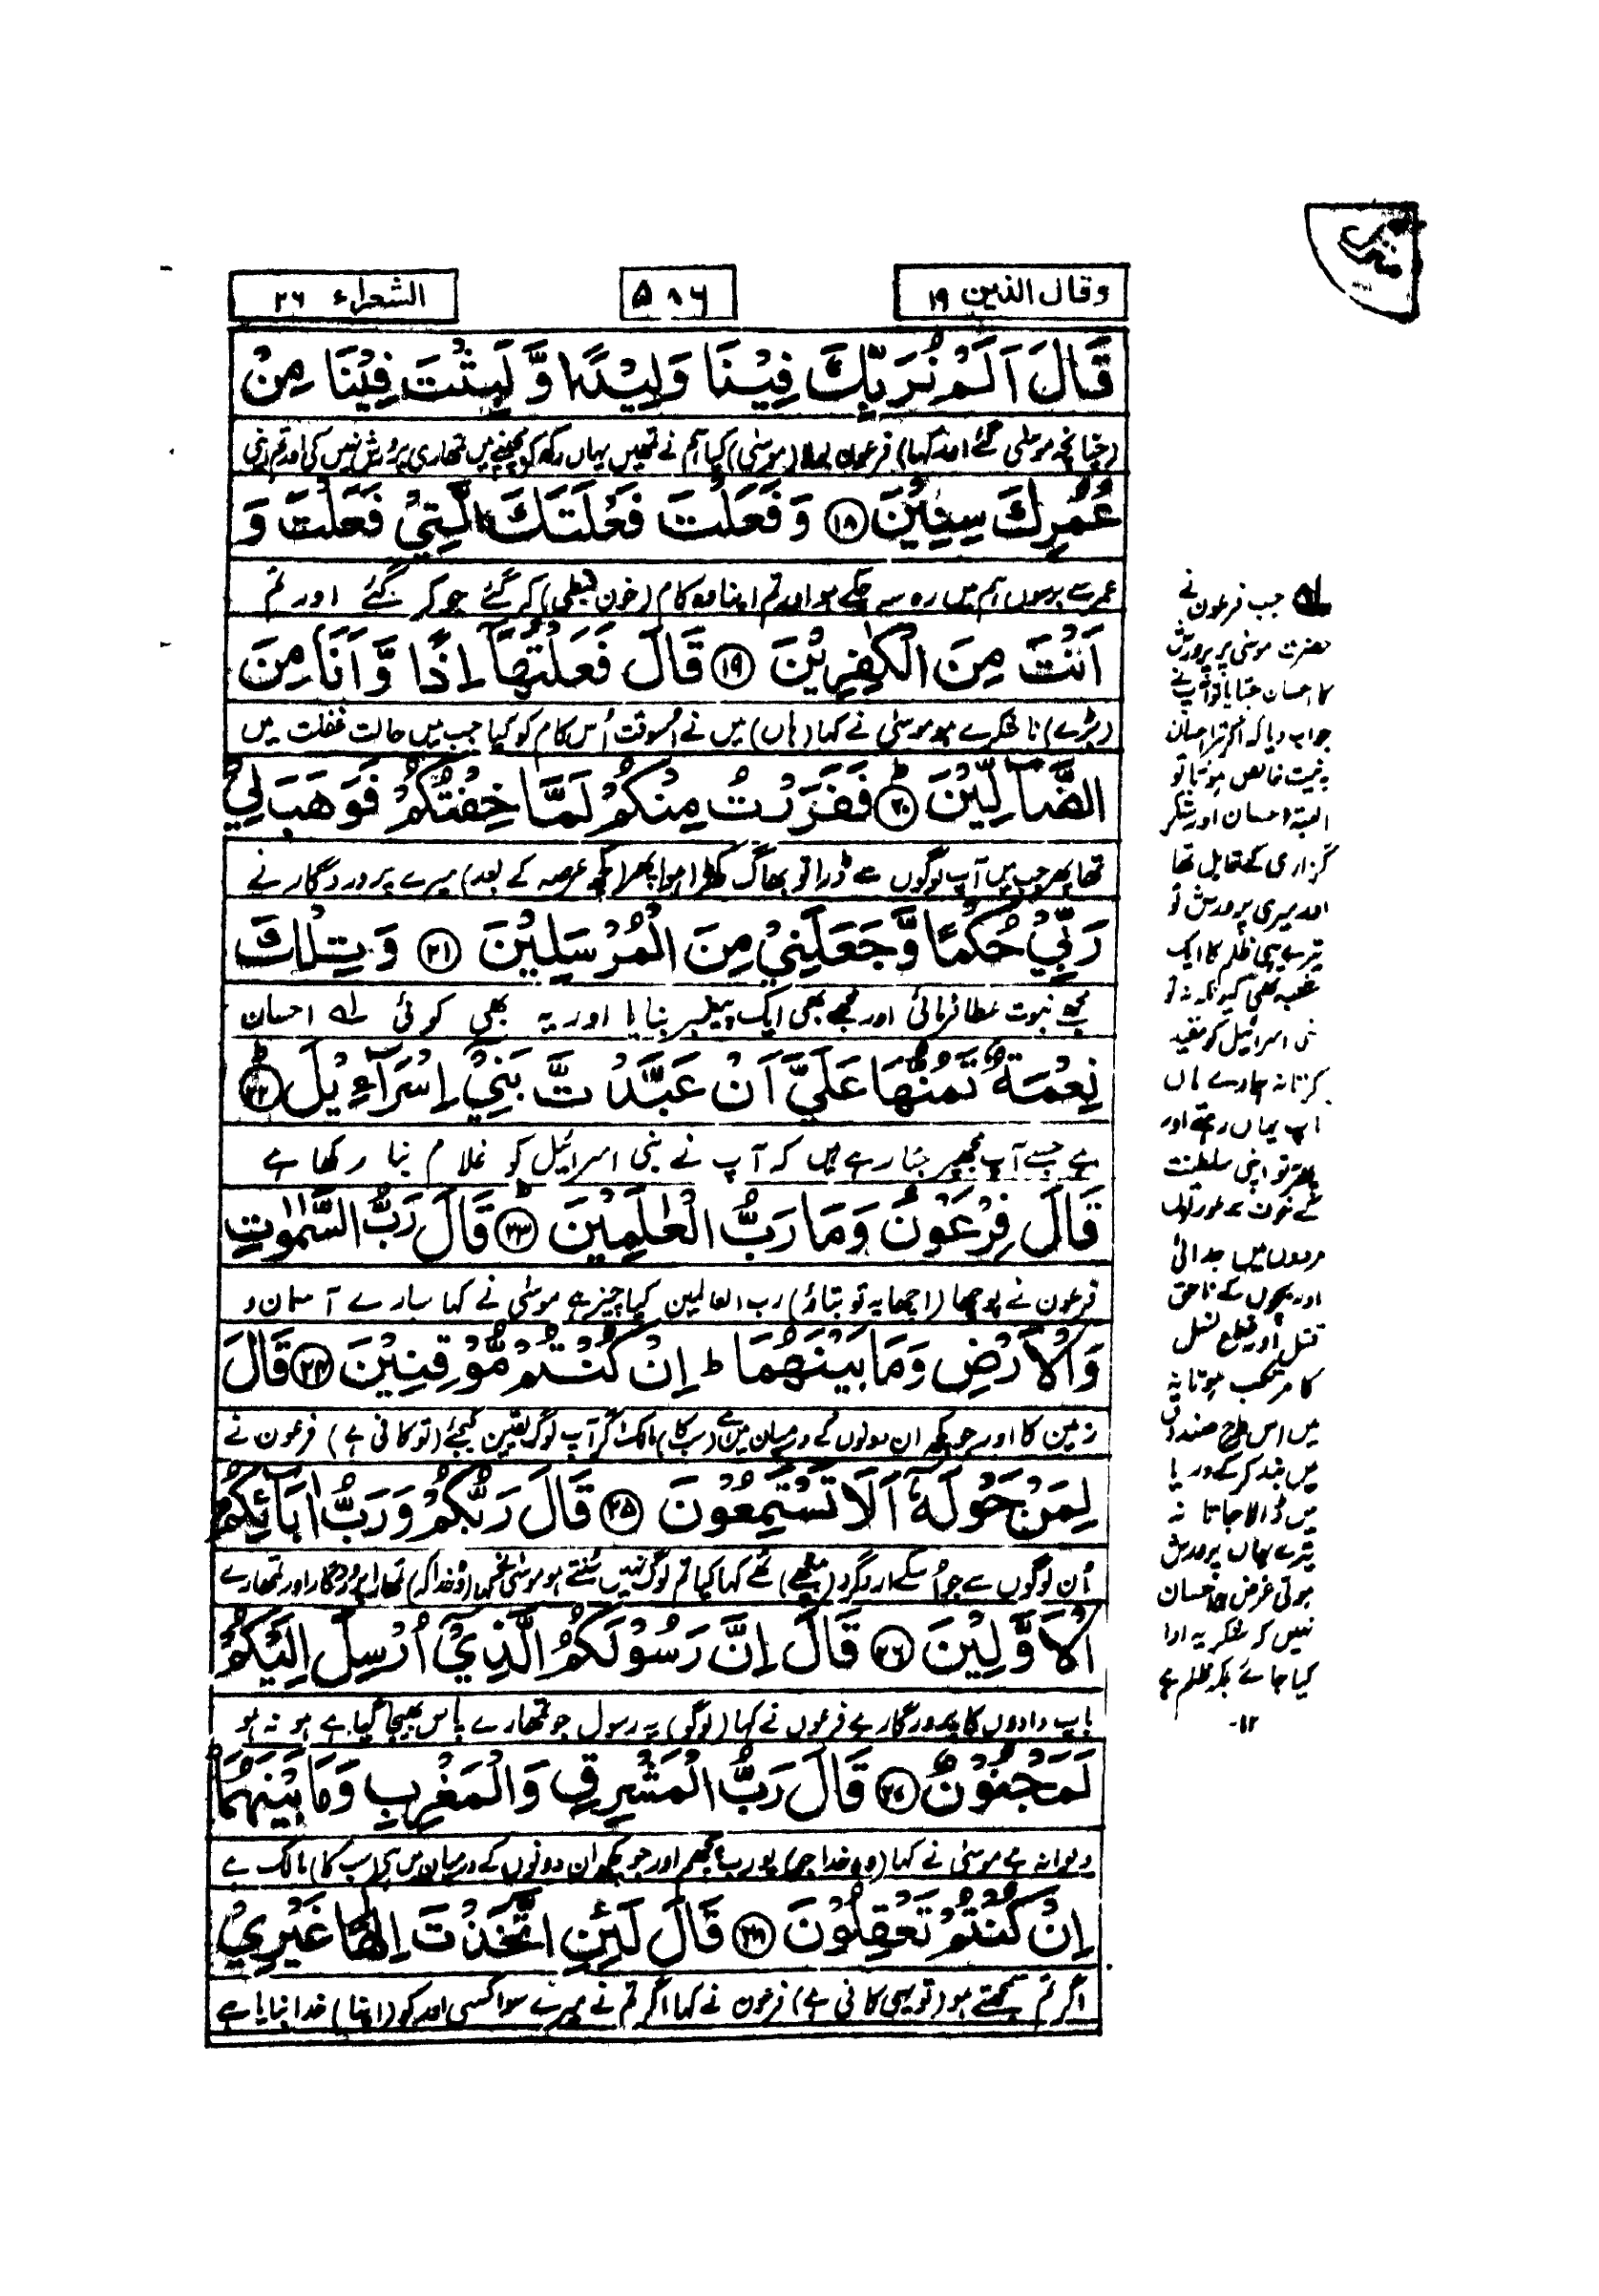 وقال الذين ١٩
۵۸۶
الشعراء ٢٦
قَالَ اَلَمْ نُرَبِّكَ فِيْنَا وَلِيْدًا وَّ لَبِثْتَ فِيْنَا مِنْ
(چنانچہ موسٰی گئے اور کہا) فرعون بولا (موسٰی) کیا ہم نے تمھیں یہاں رکھ کر بچپنے میں تمھاری پرورش نہیں کی اور تم اپنی
عُمُرِكَ سِنِيْنَ ﴿١٨﴾ وَ فَعَلْتَ فَعْلَتَكَ الَّتِيْ فَعَلْتَ وَ
عمر سے برسوں ہم میں رہ سہ چکے ہو اور تم اپنا وہ کام (خون قبطی) کر گئے جو کر گئے اور تم
اَنْتَ مِنَ الْكٰفِرِيْنَ ﴿١٩﴾ قَالَ فَعَلْتُهَآ اِذًا وَّ اَنَا مِنَ
(بڑے) ناشکرے ہو موسٰی نے کہا (ہاں) میں نے اُسوقت اُس کام کو کیا جب میں حالت غفلت میں
الضَّآلِّيْنَ ؕ﴿٢٠﴾ فَفَرَرْتُ مِنْكُمْ لَمَّا خِفْتُكُمْ فَوَهَبَ لِيْ
تھا پھر جب میں آپ لوگوں سے ڈرا تو بھاگ کھڑا ہوا پھر (کچھ عرصہ کے بعد) میرے پروردگار نے
رَبِّيْ حُكْمًا وَّجَعَلَنِيْ مِنَ الْمُرْسَلِيْنَ ﴿٢١﴾ وَ تِلْكَ
مجھے نبوت عطا فرمائی اور مجھے بھی ایک پیغمبر بنایا اور یہ بھی کوئی لہ احسان
نِعْمَةٌ تَمُنُّهَا عَلَيَّ اَنْ عَبَّدْتَّ بَنِيْٓ اِسْرَآءِيْلَ ؕ﴿٢٢﴾
ہے جسے آپ مجھپر جتا رہے ہیں کہ آپ نے بنی اسرائیل کو غلام بنا رکھا ہے
قَالَ فِرْعَوْنُ وَمَا رَبُّ الْعٰلَمِيْنَ ؕ﴿٢٣﴾ قَالَ رَبُّ السَّمٰوٰتِ
فرعون نے پوچھا (اچھا یہ تو بتاؤ) رب العالمین کیا چیز ہے موسٰی نے کہا سارے آسمان و
وَالْاَرْضِ وَمَا بَيْنَهُمَا ؕ اِنْ كُنْتُمْ مُّوْقِنِيْنَ ﴿٢٤﴾ قَالَ
زمین کا اور جو کچھ ان دونوں کے درمیان میں ہے (سب کا) مالک اگر آپ لوگ یقین کیجئے (تو کافی ہے) فرعون نے
لِمَنْ حَوْلَهٗٓ اَلَا تَسْتَمِعُوْنَ ﴿٢٥﴾ قَالَ رَبُّكُمْ وَرَبُّ اٰبَآئِكُمُ
اُن لوگوں سے جو اُسکے اردگرد (بیٹھے) تھے کہا کیا تم لوگ نہیں سُنتے ہو موسٰی نے کہا (وہ خدا کہ) تمھارا پروردگار اور تمھارے
الْاَوَّلِيْنَ ﴿٢٦﴾ قَالَ اِنَّ رَسُوْلَكُمُ الَّذِيْٓ اُرْسِلَ اِلَيْكُمْ
باپ دادوں کا پروردگار ہے فرعون نے کہا (لوگو) یہ رسول جو تمھارے پاس بھیجا گیا ہے ہو نہ ہو
لَمَجْنُوْنٌ ﴿٢٧﴾ قَالَ رَبُّ الْمَشْرِقِ وَالْمَغْرِبِ وَمَا بَيْنَهُمَا
دیوانہ ہے موسٰی نے کہا (وہ خدا جو) پورب پچھم اور جو کچھ ان دونوں کے درمیان میں ہے (سب کا) مالک ہے
اِنْ كُنْتُمْ تَعْقِلُوْنَ ﴿٢٨﴾ قَالَ لَئِنِ اتَّخَذْتَ اِلٰهًا غَيْرِيْ
اگر تم سمجھتے ہو (تو یہی کافی ہے) فرعون نے کہا اگر تم نے میرے سوا کسی اور کو (اپنا) خدا بنایا ہے
لہ جب فرعون نے
حضرت موسٰی پر پرورش
کا احسان جتایا تو آپ نے
جواب دیا کہ اگر تیرا احسان
بہ نیت خالص ہوتا تو
البتہ احسان اور شکر
گزاری کے قابل تھا
اور میری پرورش تو
تیرے ہی ظلم کا ایک
تھی کیونکہ نہ تو
بنی اسرائیل کو مقید
کرتا نہ ہمارے ماں
باپ یہاں رہتے اور
تو اپنی سلطنت
کے خوف سے عورتوں
مردوں میں جدائی
اور بچوں کے ناحق
قتل اور قطع نسل
کا مرتکب ہوتا نہ
میں اس طرح صندوق
میں بند کر کے دریا
میں ڈالا جاتا نہ
تیرے یہاں پرورش
ہوتی غرض یہ احسان
نہیں کہ شکریہ ادا
کیا جائے بلکہ ظلم ہے
۱۲-